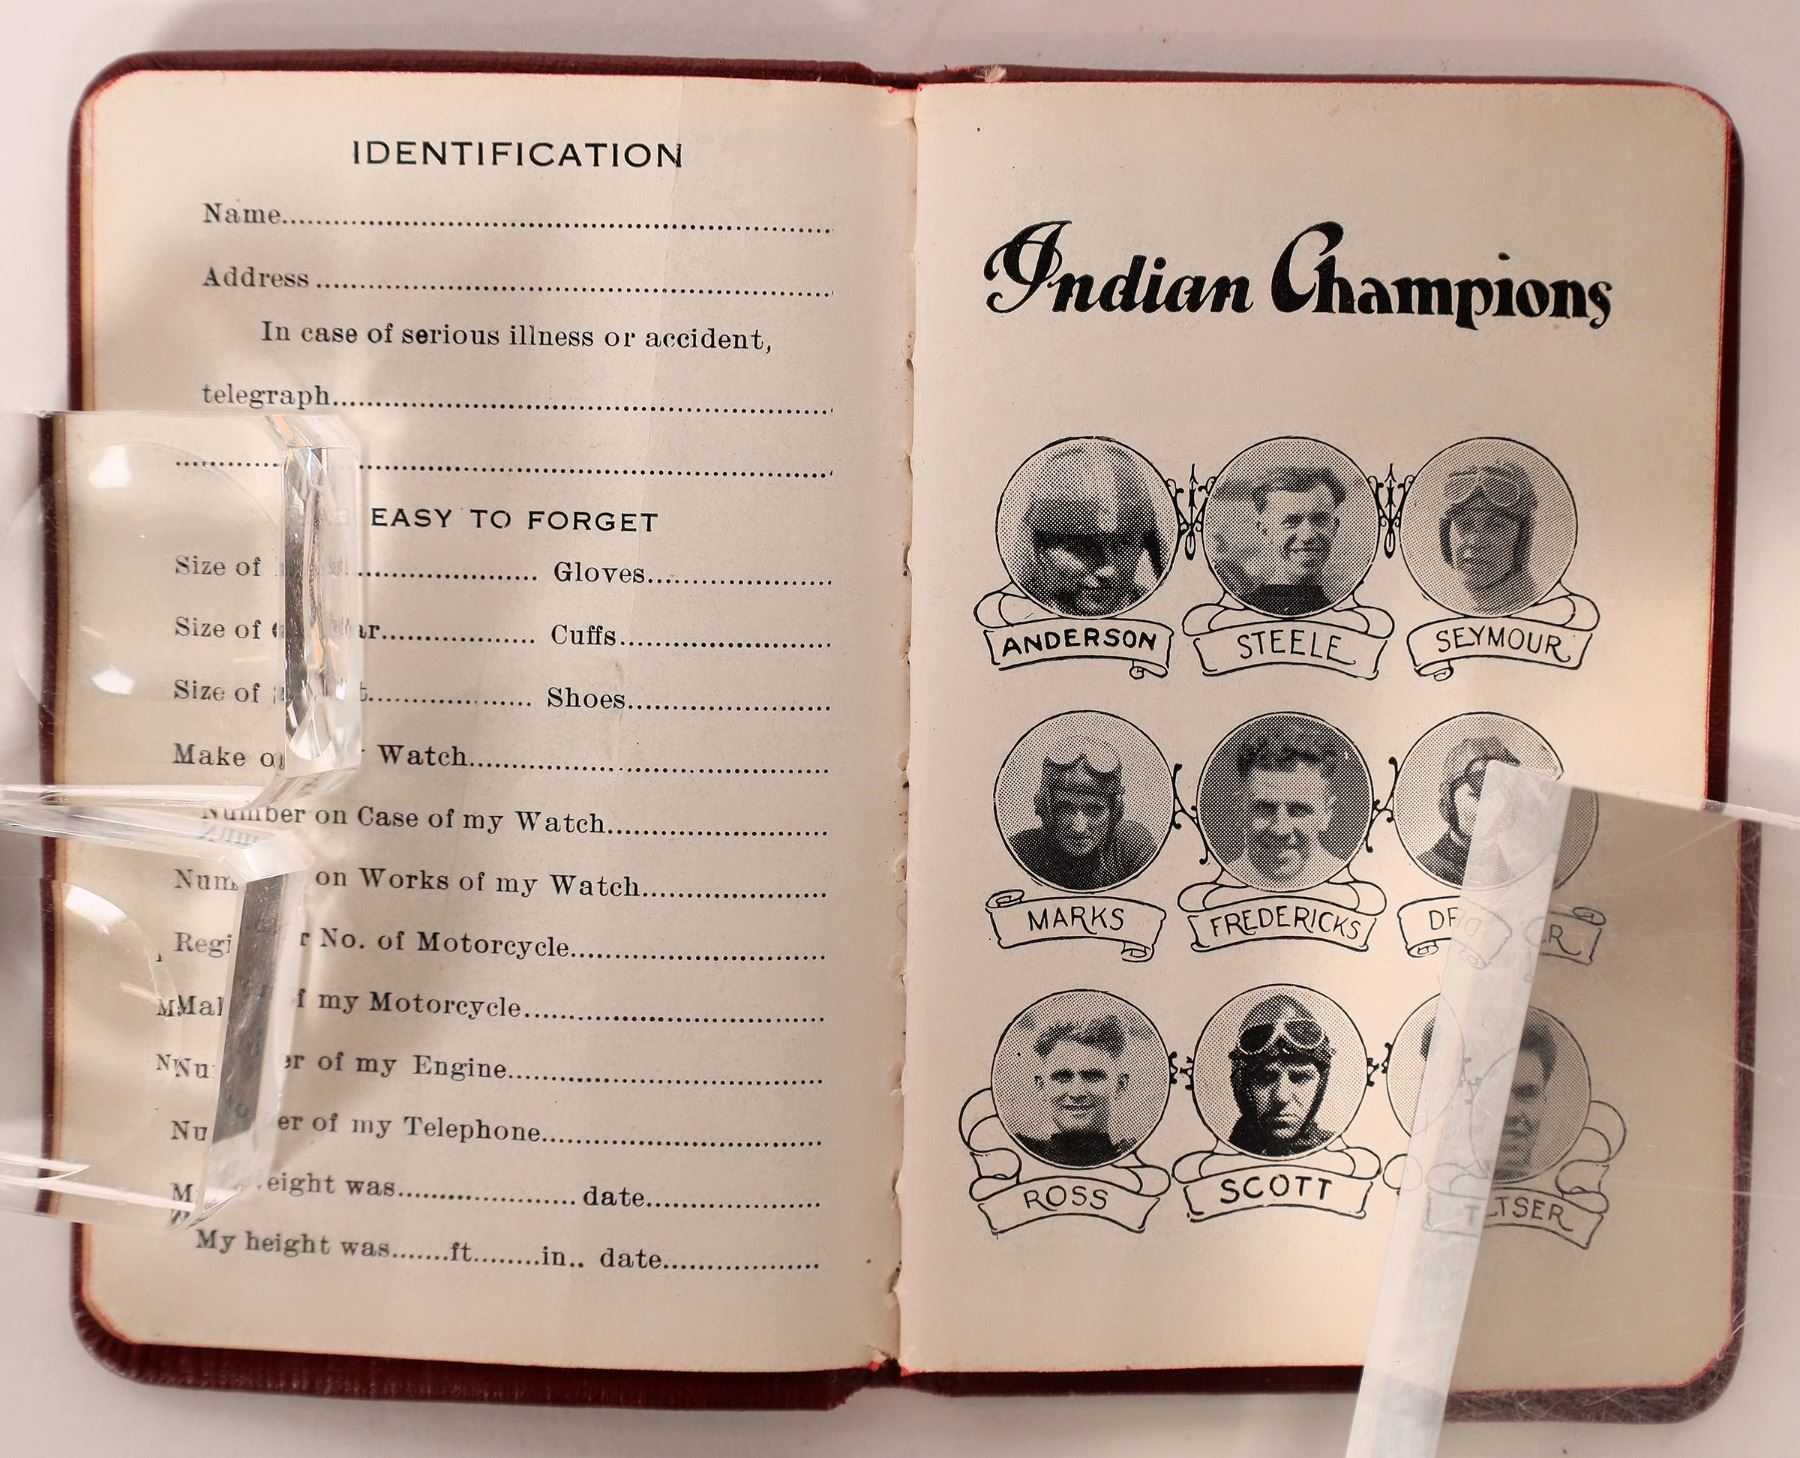 IDENTIFICATION
Name
Address
In case of serious illness or accident,
telegraph
EASY TO FORGET
Size of Gloves
Size of Cuffs
Size of Shoes
Make Watch
Number on Case of my Watch
on Works of my Watch
No. of Motorcycle
my Motorcycle
of my Engine
of my Telephone
was date
My height was ft in.. date
Indian Champions
ANDERSON STEELE SEYMOUR
MARKS FREDERICKS
ROSS SCOTT